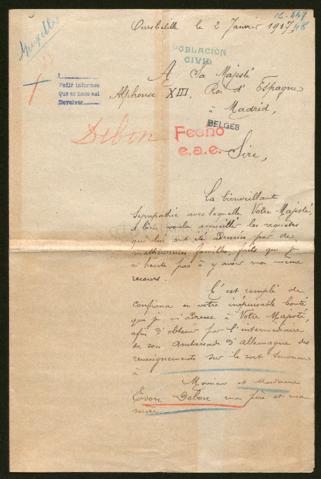 Bruxelles
le 2 Janvier 1917
POBLACION
CIVIL
A Sa Majesté
Alphonse XIII, Roi d'Espagne
à Madrid,
BELGES
Pedir informes
Debon
Fecho
e.a.e.
Sire,
La bienveillante
sympathie avec laquelle Votre Majesté,
a bien voulu accueillir les requêtes
qui lui ont été par des
malheureuses familles, fait que je
n'hésite pas à y avoir moi même
recours.
C'est rempli de
confiance en votre inépuisable bonté
que je m'adresse à Votre Majesté
afin d'obtenir par l'intermédiaire
de son Ambassade d'Allemagne des
renseignements sur le sort
à
Monsieur et Madame
Debon mon père et ma
mère